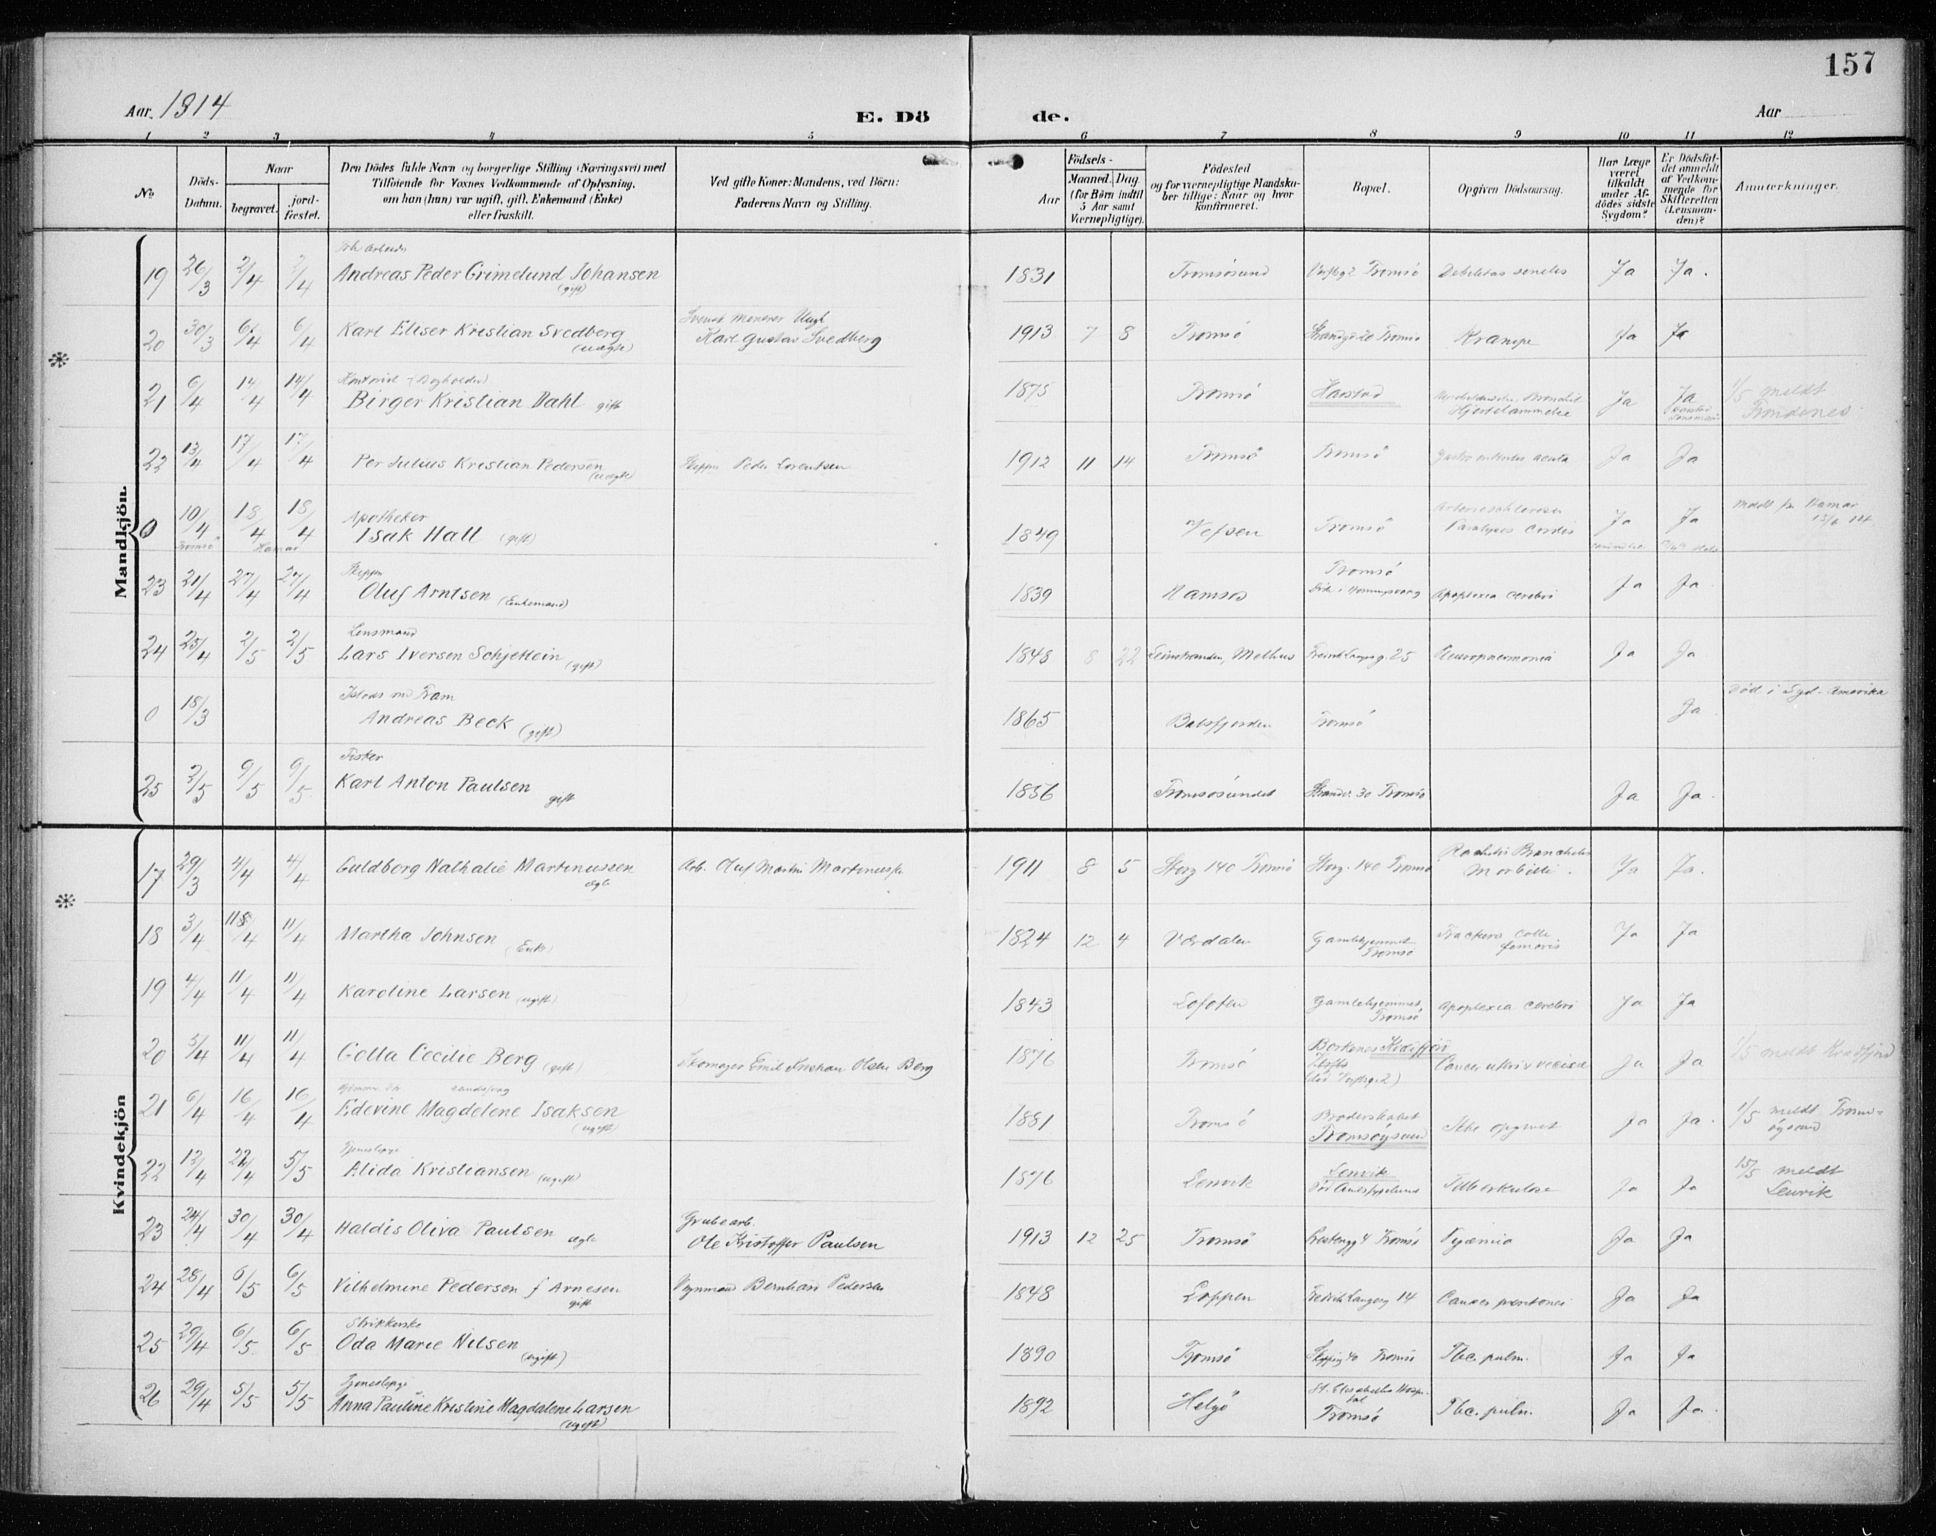 157
Aar 1914 E. Dö de. Aar
1 2 3 4 5 6 7 8 9 10 11 12
No.
Döds-Datum.
Naar
begravet.
jordfæstet.
Den Dödes fulde Navn og borgerlige Stilling (Næringsvei) med Tilföiende for Voxnes Vedkommende af Oplysning, om han (hun) var ugift, gift, Enkemand (Enke) eller fraskilt.
Ved gifte Koner: Mandens, ved Börn: Faderens Navn og Stilling.
Födsels-
Aar
Maaned. Dag.
(for Börn indtil 5 Aar samt Værnepligtige).
Födested og for værnepligtige Mandskaber tillige: Naar og hvor konfirmeret.
Bopæl.
Opgiven Dödsaarsag.
Har Læge været tilkaldt under Afdödes sidste Sygdom?
Er Dödsfaldet anmeldt af Vedkommende for Skifteretten (Lensmanden)?
Anmærkninger.
Mandkjön.
19 26/3 2/4 2/4 Andreas Peder Grimelund Johansen (gift) 1831 Tromsösund Tromsö Debilitas senilis Ja Ja.
20 30/3 6/4 6/4 Karl Eliser Kristian Svedberg (uægte) Karl Gustav Svedberg 1913 7 8 Tromsö Strandg. 20 Tromsö Krampe Ja Ja
21 6/4 14/4 14/4 Birger Kristian Dahl gift 1875 Tromsö Harstad Hjertelammelse Ja Ja 1/5 meldt Trondenes
22 13/4 17/4 17/4 Per Julius Kristian Pedersen (uægte) Skipper Peder Lorentsen 1912 11 14 Tromsö Tromsö acuta Ja Ja
0 10/4 Tromsö 18/4 18/4 Hamar Apotheker Isak Hall (gift) 1849 Vefsen Tromsö Paralysis cordis Ja Ja Meldt fra Hamar
23 21/4 27/4 27/4 Skipper Oluf Arntsen (Enkemand) 1839 Namsos Tromsö Apoplexia cerebri Ja Ja
24 25/4 2/5 2/5 Lensmand Lars Iversen Schjetlein (gift) 1848 8 22 Leinstranden, Melhus 25 Pleuropneumonia Ja Ja
0 18/3 Fram Andreas Beck (gift) 1865 Balsfjorden Tromsö Ja Död i Syd-Amerika
25 2/5 9/5 9/5 Fisker Karl Anton Paulsen gift 1856 Tromsösundet 30 Tromsö Ja Ja.
Kvindekjön
17 29/3 4/4 4/4 Guldborg Nathalie Martinussen ægte Arb. Oluf Martin Martinussen 1911 8 5 Storg 140 Tromsö Storg. 140 Tromsö Morbilli. Ja Ja.
18 3/4 11/4 Martha Johnsen (Enke) 1824 12 4 Værdalen Gamlehjemmet Tromsö colli femoris Ja Ja
19 4/4 11/4 11/4 Karoline Larsen (ugift) 1843 Lofoten Gamlehjemmet, Tromsö Apoplexia cerebri Ja Ja
20 5/4 11/4 11/4 Golla Cecilie Berg (gift) Skomager Emil Kristian Olsen Berg 1876 Tromsö Borkenes Kvæfjord Ja Ja 1/5 meldt Kvæfjord
21 6/4 16/4 16/4 Edevine Magdelene Isaksen (ugift) 1881 Tromsö Tromsöysund Ja Ja. 1/5 meldt Tromsöysund
22 13/4 5/5 Alida Kristiansen (ugift) 1876 Lenvik Lenvik Tuberkulose Ja Ja 15/5 meldt Lenvik
23 24/4 30/4 30/4 Haldis Oliva Paulsen ægte Grubearb. Ole Kristoffer Paulsen 1913 12 25 Tromsö 4 Tromsö Pyæmia Ja Ja
24 28/4 6/5 6/5 Vilhelmine Pedersen f Arnesen gift Bernhard Pedersen 1848 Loppen Fredrik Langesg 14 Cancer peritonei Ja Ja
25 29/4 6/5 6/5 Strikkerske Oda Marie Nilsen (ugift) 1890 Tromsö Tromsö Tbc. pulm. Ja Ja
26 29/4 5/5 5/5 Tjenestepige Anna Pauline Kristine Magdalene Larsen (ugift) 1892 Helgö St. Elisabeths Hospital Tromsö Tbc. pulm. Ja Ja.